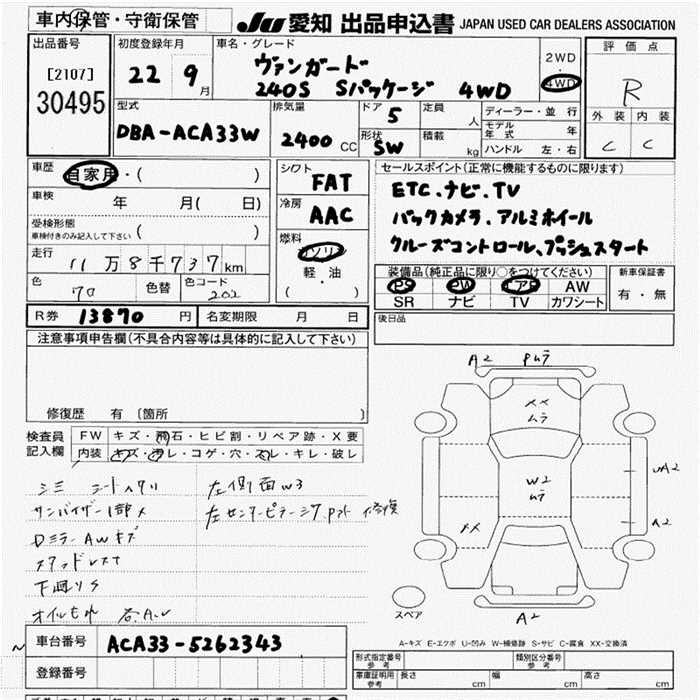 車内保管・守衛保管
JU 愛知 出品申込書 JAPAN USED CAR DEALERS ASSOCIATION
出品番号
[2107]
30495
初度登録年月
22 9月
車名・グレード
ヴァンガード
240S Sパッケージ 4WD
2WD
・
4WD
評価点
R
外装 内装
C C
型式
DBA-ACA33W
排気量
2400 CC
ドア 5
形状 SW
定員 人
積載 kg
ディーラー・並行
モデル年式 年
ハンドル 左・右
車歴
自家用・( )
車検
年 月( 日)
受検形態
車検付きのみ記入して下さい ( )
走行
11万8千737km
色 70 色替 色コード 202
シフト
FAT
冷房
AAC
燃料
ガソリン
軽・油
( )
セールスポイント(正常に機能するものに限ります)
ETC.ナビ.TV
バックカメラ.アルミホイール
クルーズコントロール、プッシュスタート
装備品(純正品に限り○をつけてください)
PS PW エアB AW
SR ナビ TV カワシート
新車保証書
有・無
R券 13870 円 名変期限 月 日
後日品
注意事項申告欄(不具合内容等は具体的に記入して下さい)
修復歴 有 〔箇所 〕
検査員
記入欄
FW キズ・飛石・ヒビ割・リペア跡・X要
内装 キズ・汚レ・コゲ・穴・スレ・キレ・破レ
シミ シートヘタリ
サンバイザー1部メ
Dミラー AWキズ
下廻りS
オイルもれ
左側面W3
左センターピラー
修復
A2
XX
ムラ
W2
ムラ
XX
UA2
A2
A2
スペア
A-キズ E-エクボ U-凹み W-補修跡 S-サビ C-腐食 XX-交換済
車台番号 ACA33-5262343
登録番号
形式指定番号
参考
類別区分番号
参考
車庫証明用
参考
長さ cm 幅 cm 高さ cm